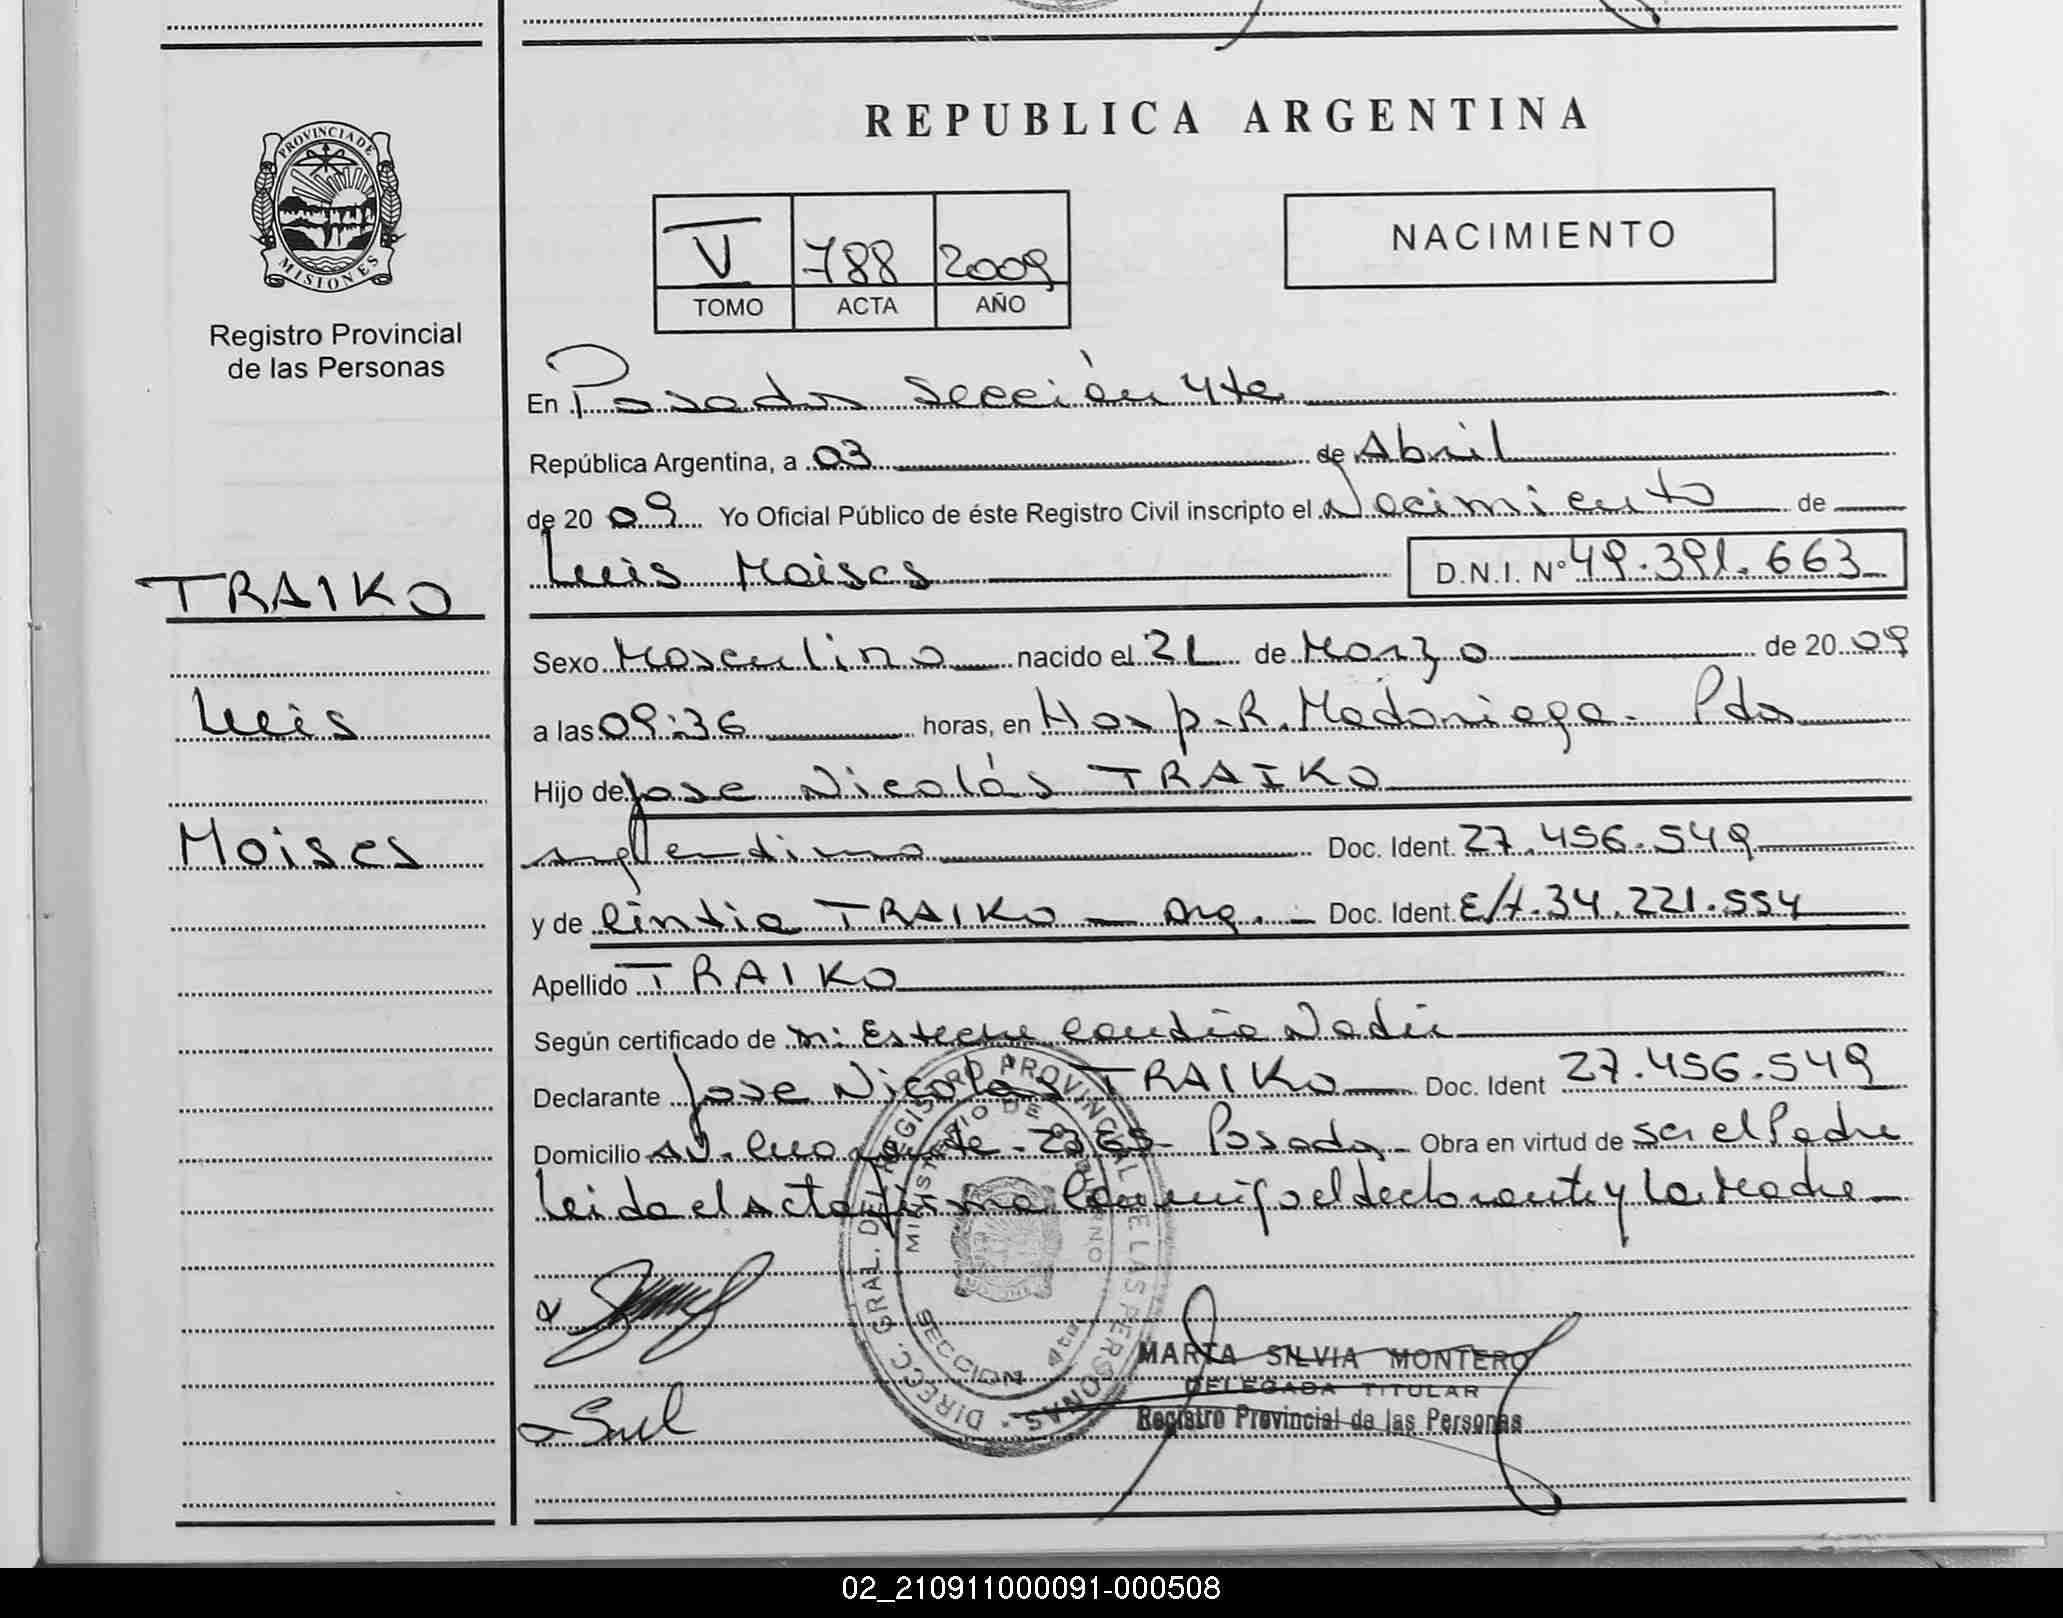 REPUBLICA ARGENTINA
PROVINCIA DE MISIONES
Registro Provincial
de las Personas
V 788 2009
TOMO ACTA AÑO
NACIMIENTO
En Posadas Sección 4ta
República Argentina, a 03 de Abril
de 2009 Yo Oficial Público de éste Registro Civil inscripto el Nacimiento de
Luis Moises D.N.I. Nº 49.391.663
TRAIKO
Luis
Moises
Sexo Masculino nacido el 21 de Marzo de 2009
a las 09:36 horas, en Hosp. R. Madariaga - Pdas
Hijo de Jose Nicolás TRAIKO
argentino Doc. Ident. 27.456.549
y de Cintia TRAIKO - Arg. - Doc. Ident. 34.221.554
Apellido TRAIKO
Según certificado de Nadir
Declarante Jose Nicolas TRAIKO Doc. Ident 27.456.549
Domicilio Av. Posadas - Obra en virtud de ser el Padre
Leida el acta firma conmigo el declarante y la Madre
DIRECC. GRAL. DEL REGISTRO PROVINCIAL DE LAS PERSONAS
MINISTERIO DE GOBIERNO
SECCION 4ta
MARTA SILVIA MONTERO
DELEGADA TITULAR
Registro Provincial de las Personas
02_210911000091-000508